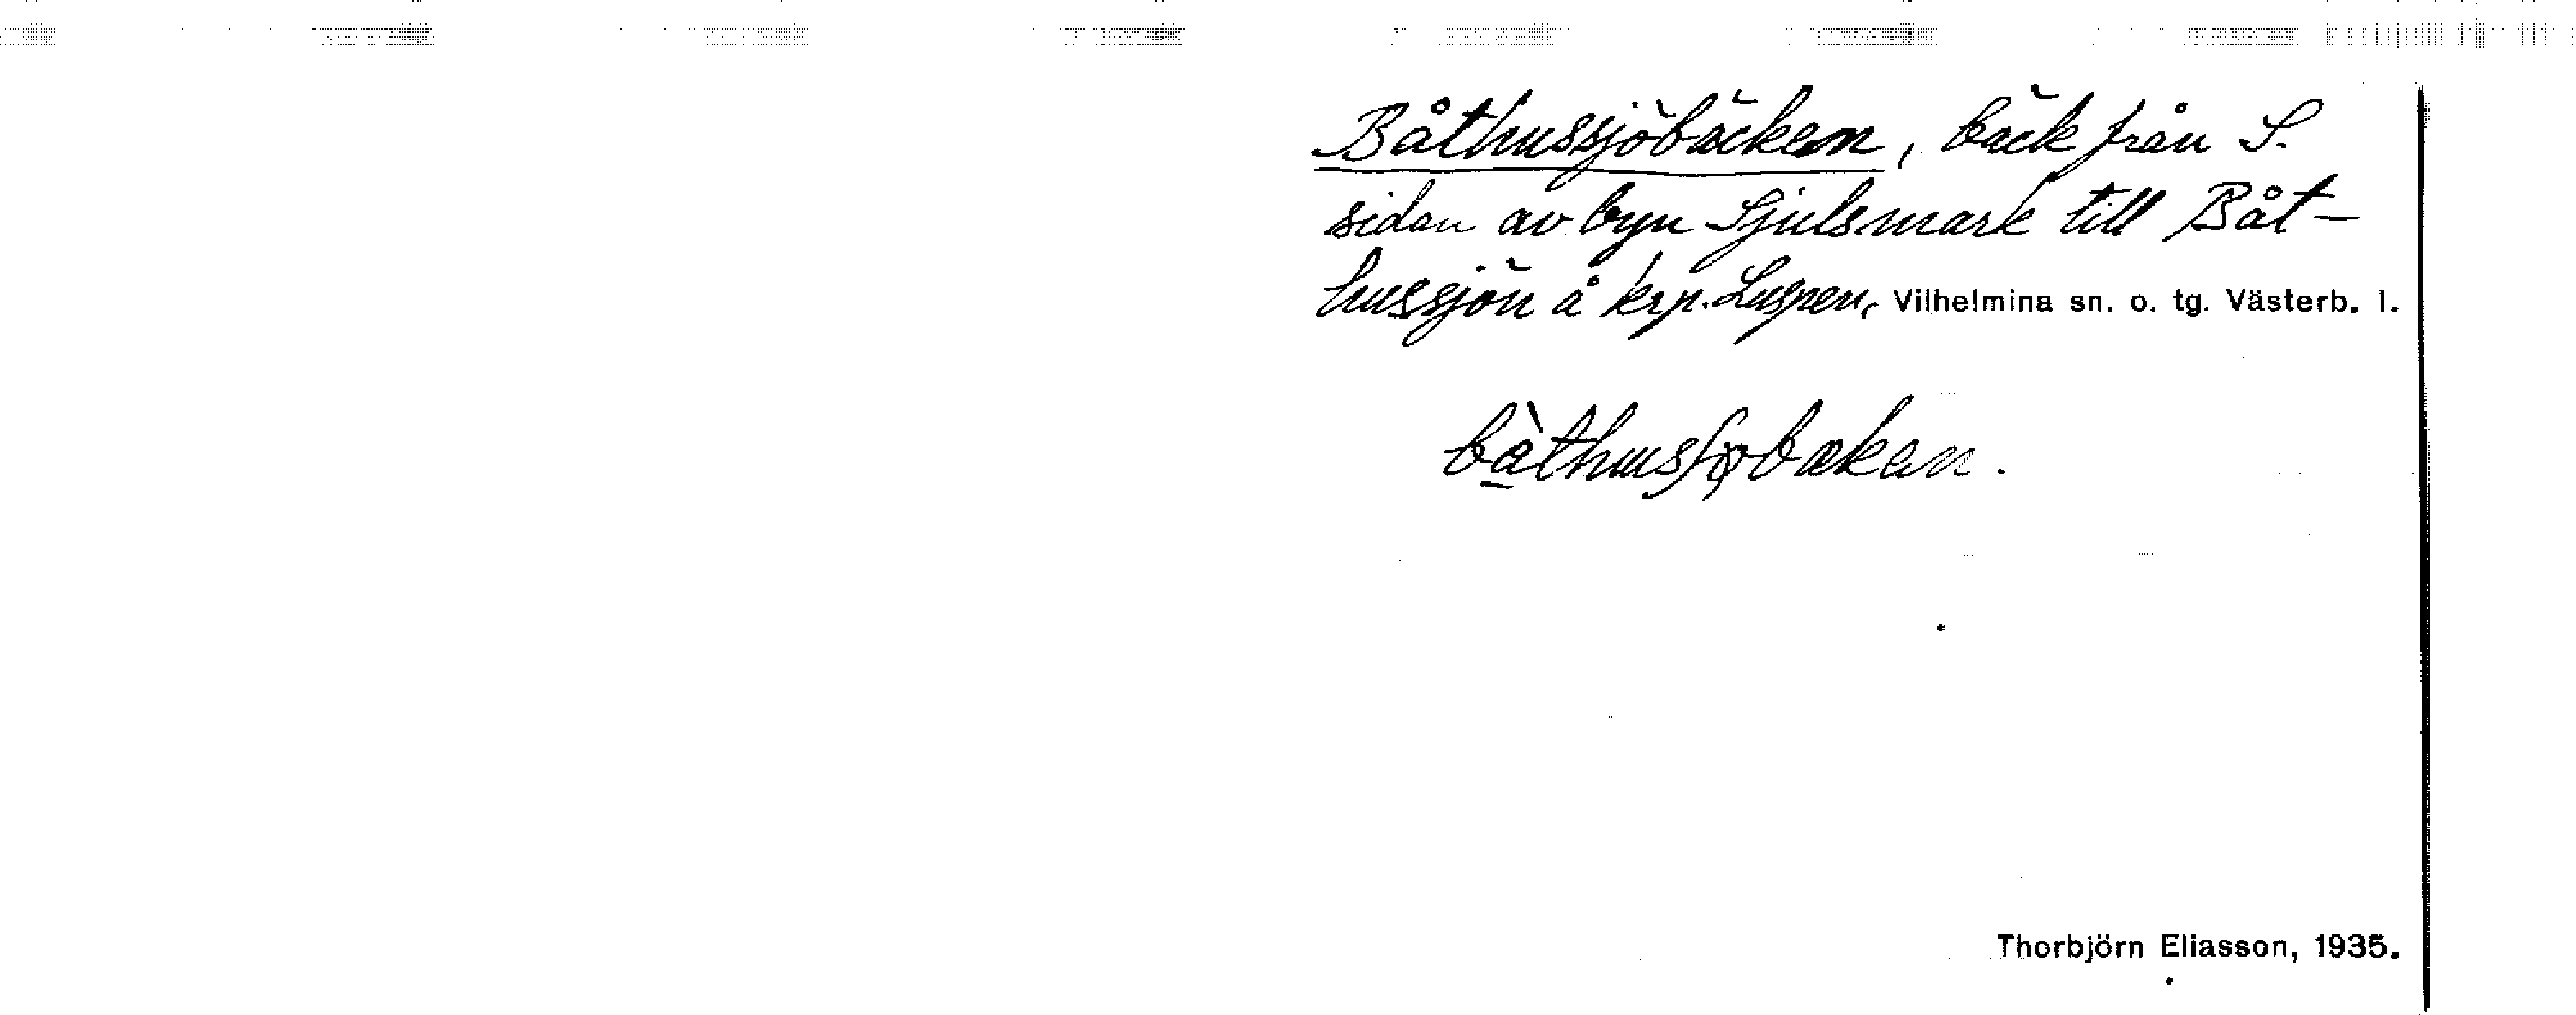 Båthussjöbäcken, bäck från S.
sidan av byn Sjulsmark till Båt-
hussjön å krp. Luspen, Vilhelmina sn. o. tg. Västerb. l.
Thorbjörn Eliasson, 1935.